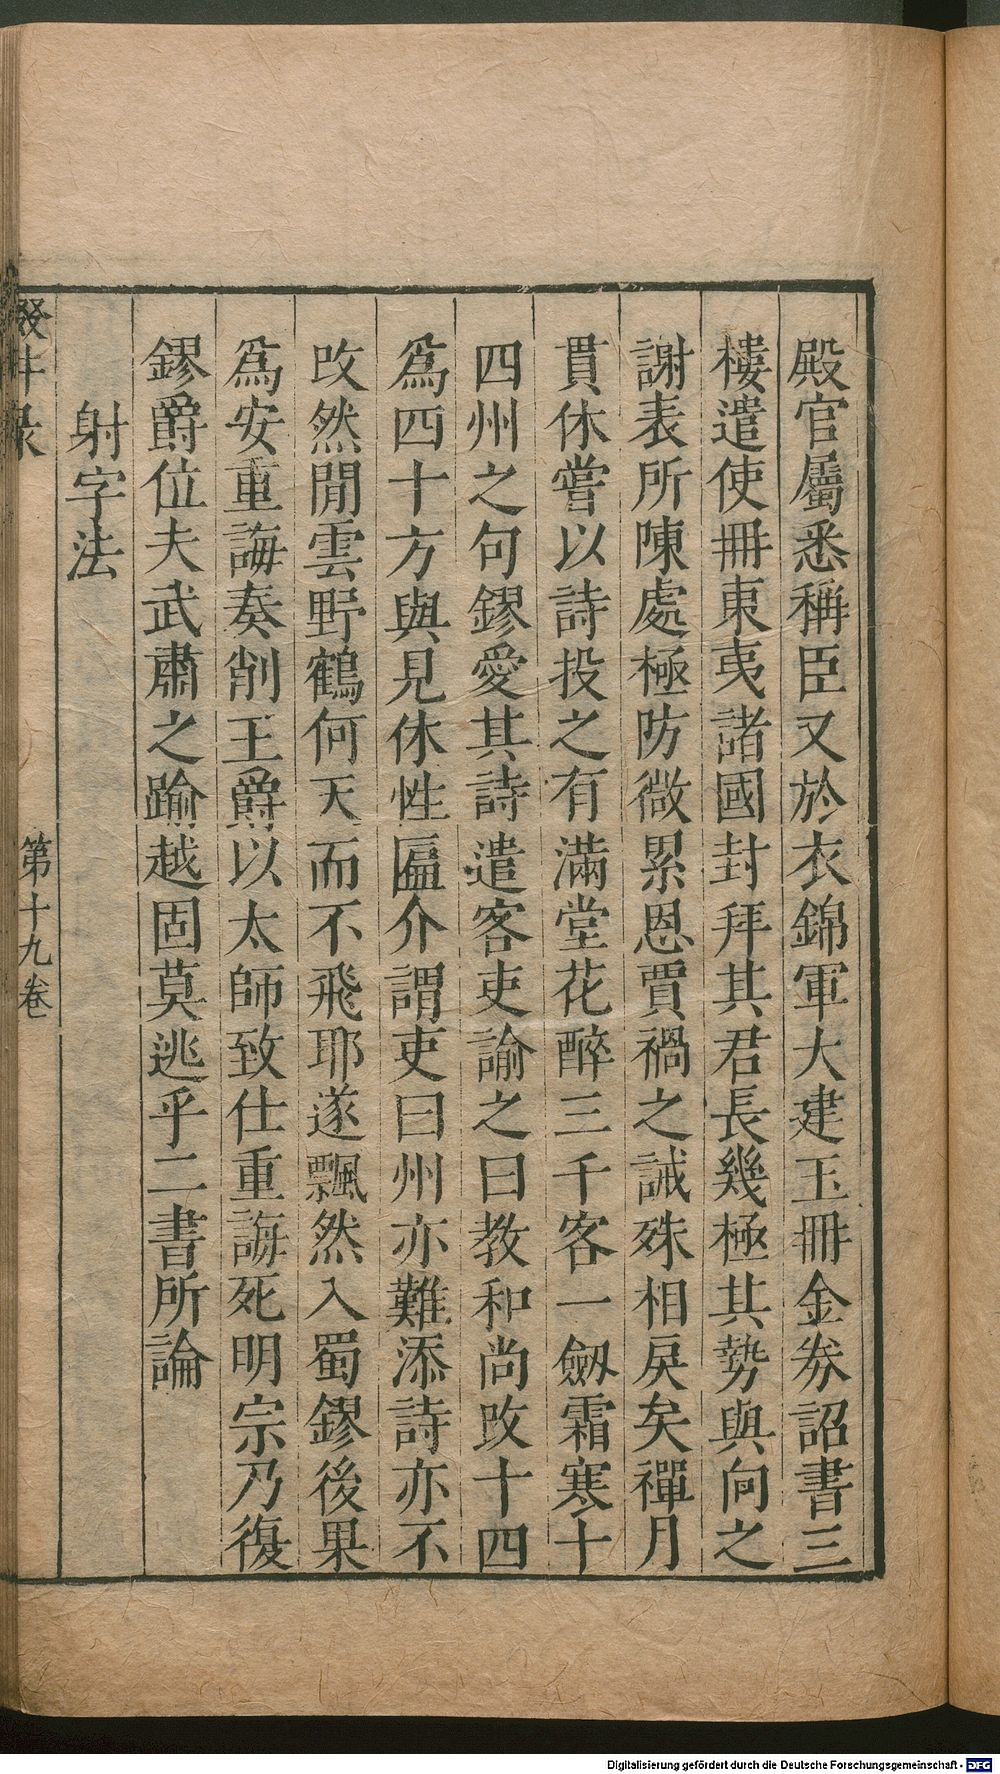 殿官屬悉稱臣又於衣錦軍大建玉冊金券詔書三
樓遣使冊東夷諸國封拜其君長幾極其勢與向之
謝表所陳處極防微累恩賈禍之誡殊相戾矣禪月
貫休嘗以詩投之有滿堂花醉三千客一劔霜寒十
四州之句鏐愛其詩遣客吏諭之曰教和尚改十四
為四十方與見休性匾介謂吏曰州亦難添詩亦不
改然閒雲野鶴何天而不飛耶遂飄然入蜀鏐後果
為安重誨奏削王爵以太師致仕重誨死明宗乃復
鏐爵位夫武肅之踰越固莫逃乎二書所論
射字法
輟畊录 第十九卷
Digitalisierung gefördert durch die Deutsche Forschungsgemeinschaft - DFG